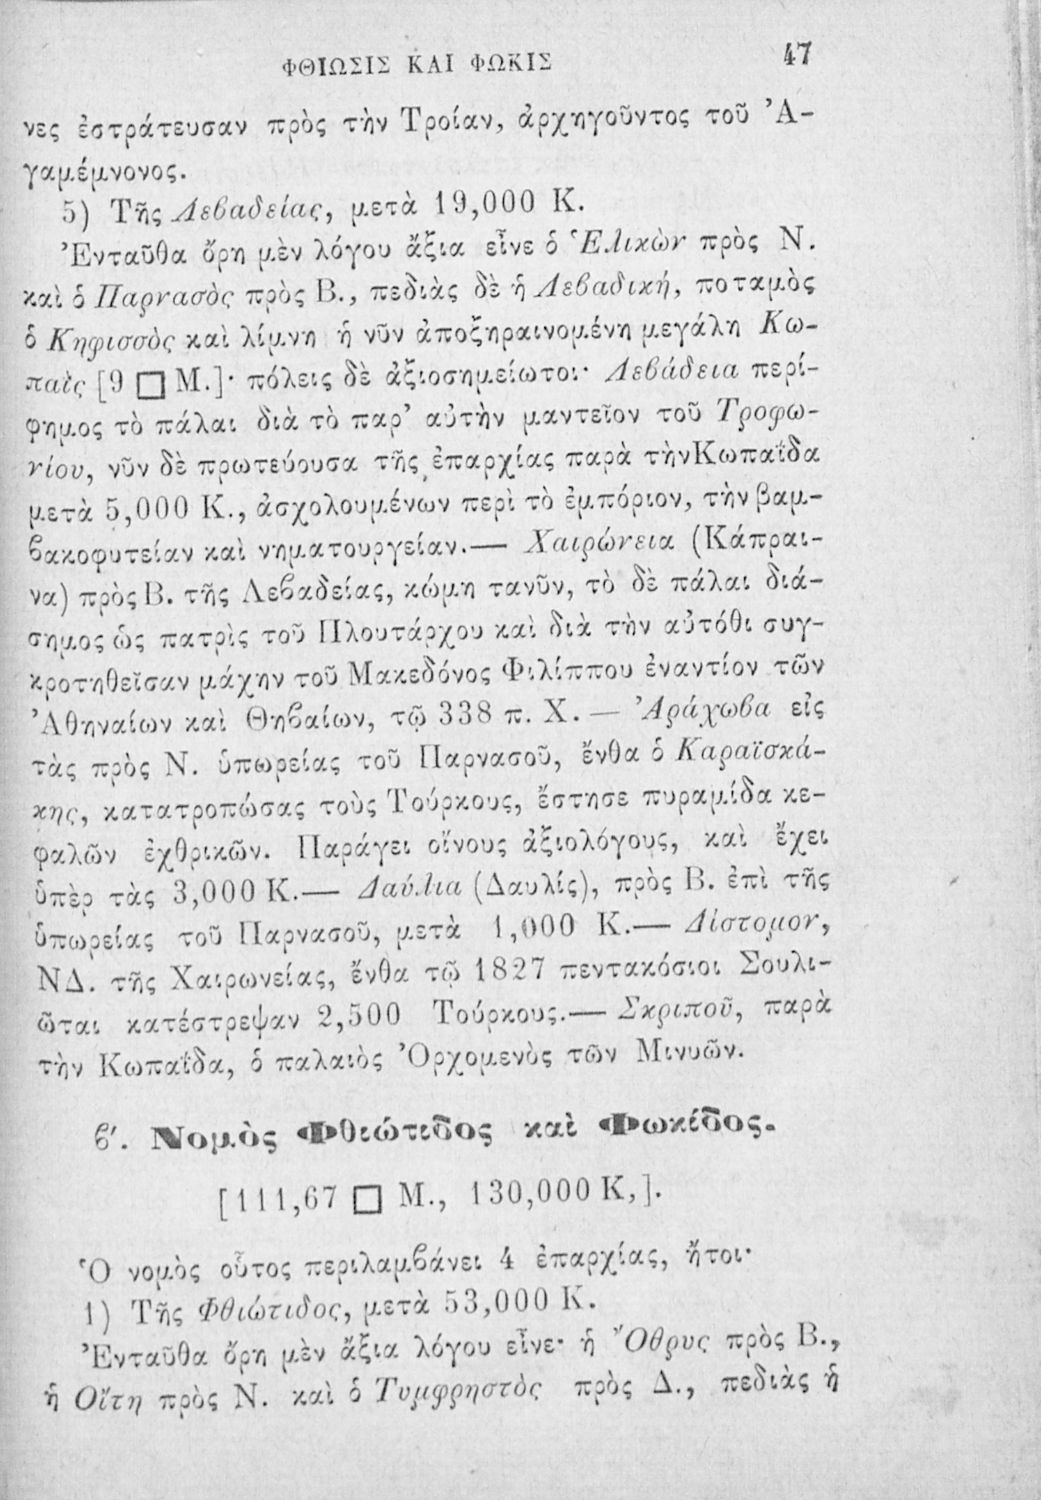 ΦΘΙΩΣΙΣ ΚΑΙ ΦΩΚΙΣ 47
νες ἐστράτευσαν πρὸς τὴν Τροίαν, ἀρχηγοῦντος τοῦ Ἀ-
γαμέμνονος.
5) Τῆς Λεβαδείας, μετὰ 19,000 Κ.
Ἐνταῦθα ὄρη μὲν λόγου ἄξια εἶνε ὁ Ἑλικὼν πρὸς Ν.
καὶ ὁ Παρνασὸς πρὸς Β., πεδιὰς δὲ ἡ Λεβαδικὴ, ποταμὸς
ὁ Κηφισσὸς καὶ λίμνη ἡ νῦν ἀποξηραινομένη μεγάλη Κω-
παῒς [9 □ Μ.]· πόλεις δὲ ἀξιοσημείωτοι· Λεβάδεια περί-
φημος τὸ πάλαι διὰ τὸ παρ’ αὐτὴν μαντεῖον τοῦ Τροφω-
νίου, νῦν δὲ πρωτεύουσα τῆς ἐπαρχίας παρὰ τὴνΚωπαΐδα
μετὰ 5,000 Κ., ἀσχολουμένων περὶ τὸ ἐμπόριον, τὴν βαμ-
βακοφυτείαν καὶ νηματουργείαν.— Χαιρώνεια (Κάπραι-
να) πρὸς Β. τῆς Λεβαδείας, κώμη τανῦν, τὸ δὲ πάλαι διά-
σημος ὡς πατρὶς τοῦ Πλουτάρχου καὶ διὰ τὴν αὐτόθι συγ-
κροτηθεῖσαν μάχην τοῦ Μακεδόνος Φιλίππου ἐναντίον τῶν
Ἀθηναίων καὶ Θηβαίων, τῷ 338 π. Χ. — Ἀράχωβα εἰς
τὰς πρὸς Ν. ὑπωρείας τοῦ Παρνασοῦ, ἔνθα ὁ Καραϊσκά-
κης, κατατροπώσας τοὺς Τούρκους, ἔστησε πυραμίδα κε-
φαλῶν ἐχθρικῶν. Παράγει οἴνους ἀξιολόγους, καὶ ἔχει
ὑπὲρ τὰς 3,000 Κ.— Δαύλια (Δαυλίς), πρὸς Β. ἐπὶ τῆς
ὑπωρείας τοῦ Παρνασοῦ, μετὰ 1,000 Κ.— Δίστομον,
ΝΔ. τῆς Χαιρωνείας, ἔνθα τῷ 1827 πεντακόσιοι Σουλι-
ῶται κατέστρεψαν 2,500 Τούρκους.— Σκριποῦ, παρὰ
τὴν Κωπαΐδα, ὁ παλαιὸς Ὀρχομενὸς τῶν Μινυῶν.
β′. Νομὸς Φθιώτιδος καὶ Φωκίδος.
[111,67 □ Μ., 130,000 Κ,].
Ὁ νομὸς οὗτος περιλαμβάνει 4 ἐπαρχίας, ἤτοι·
1) Τῆς Φθιώτιδος, μετὰ 53,000 Κ.
Ἐνταῦθα ὄρη μὲν ἄξια λόγου εἶνε· ἡ Ὄθρυς πρὸς Β.,
ἡ Οἴτη πρὸς Ν. καὶ ὁ Τυμφρηστὸς πρὸς Δ., πεδιὰς ἡ